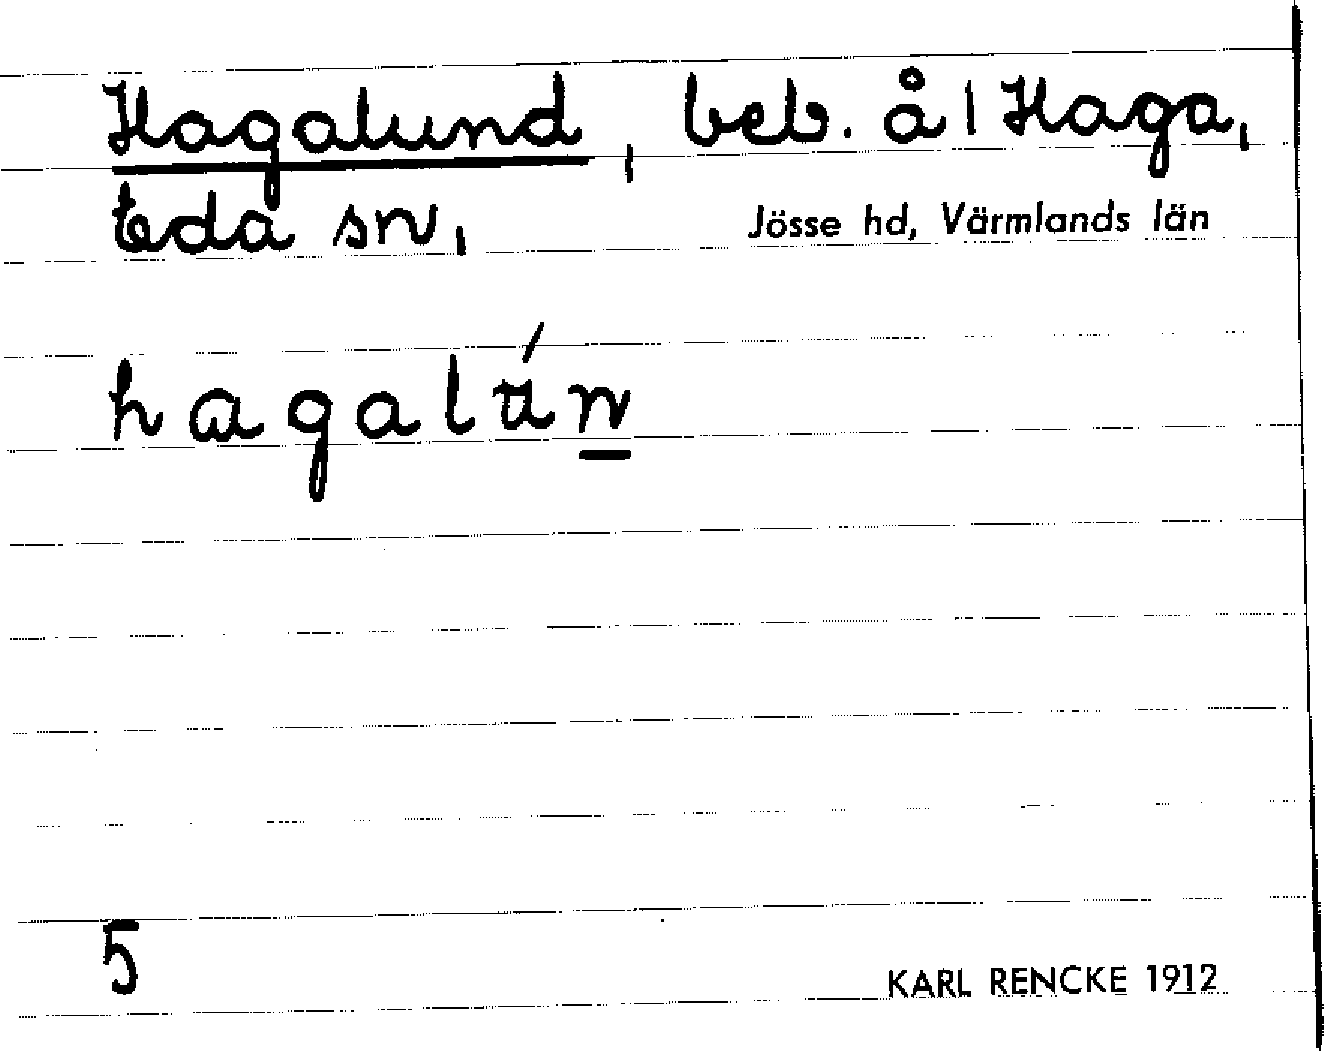 Hagalund, beb. å 1 Haga,
Eda sn, Jösse hd, Värmlands län
hagalún
5
KARL RENCKE 1912